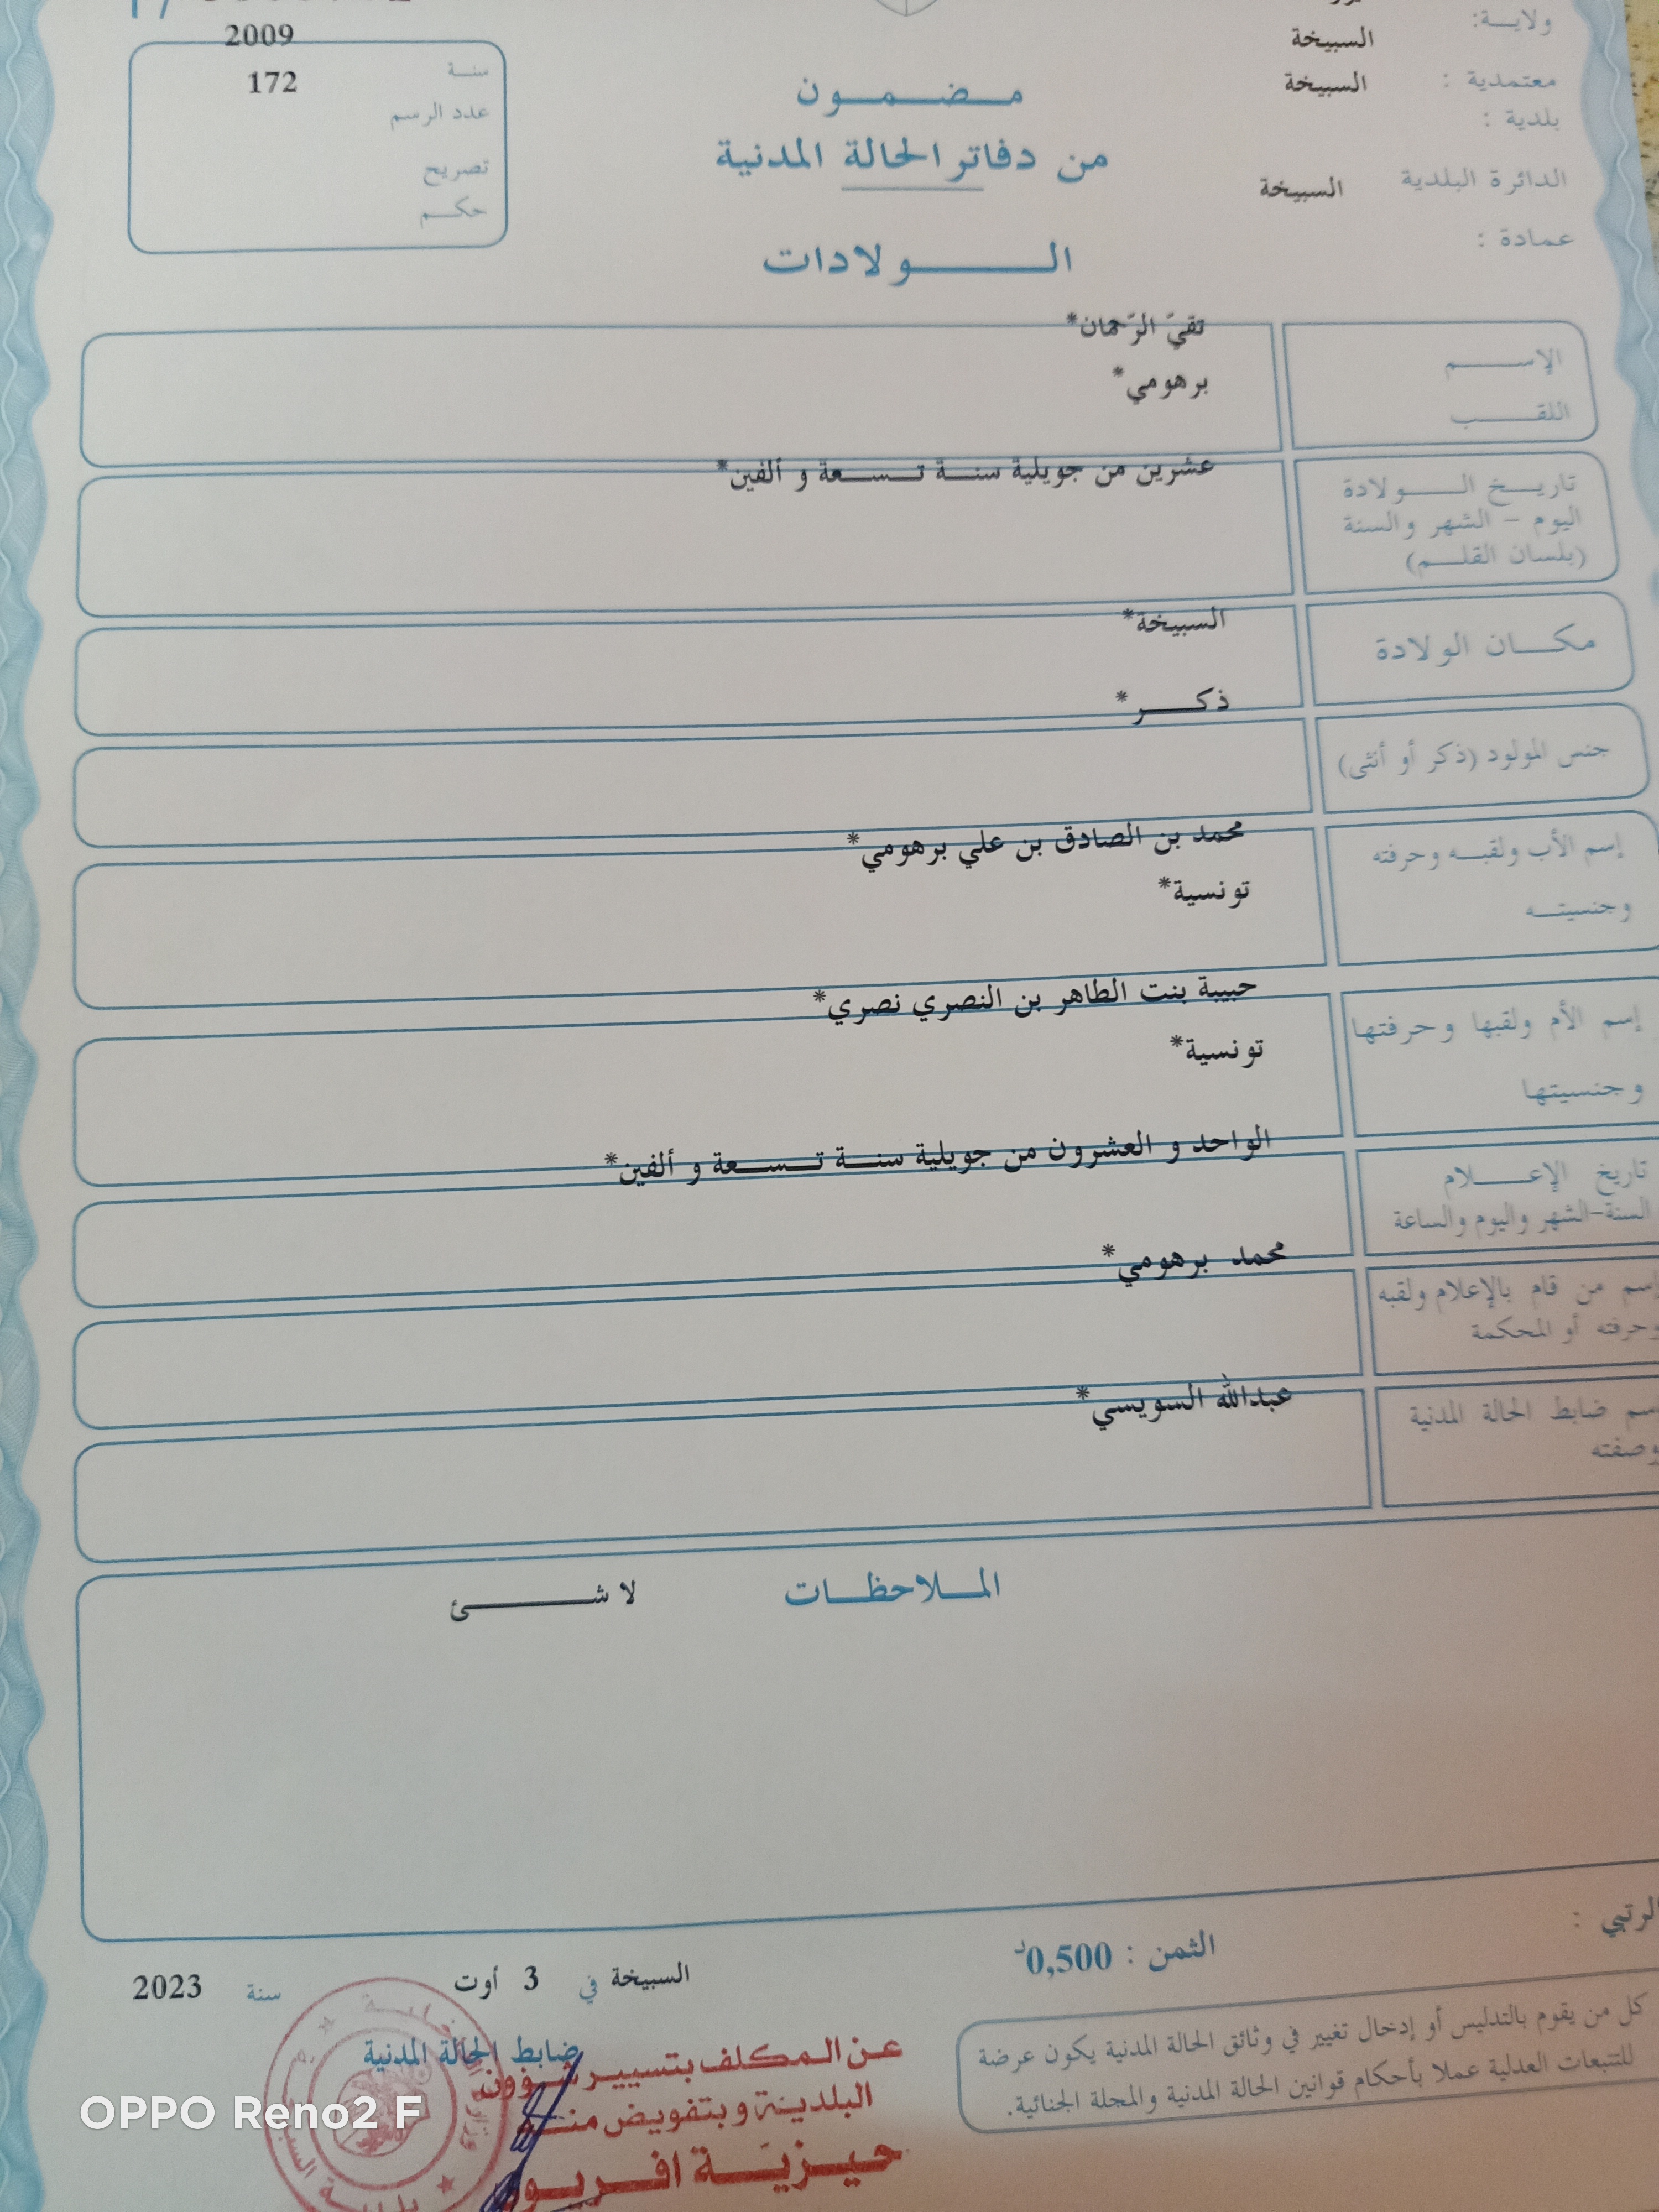 ولايـــة:
السبيخة
معتمدية :
السبيخة
بلدية :
الدائرة البلدية
السبيخة
عمادة :
2009
سنــة
172
عدد الرسم
تصريح
حكـــم
مـــضـــمـــون
من دفاتر الحالة المدنية
الـــــــولادات
الإســـــم
تقيّ الرّحمان*
اللقـــــب
برهومي*
تاريـــخ الـــــولادة
اليوم – الشهر والسنة
(بلسان القلـــم)
عشرين من جويلية سنـــة تـــســـعة و ألفين*
مكـــان الولادة
السبيخة*
ذكـــــر*
جنس المولود (ذكر أو أنثى)
إسم الأب ولقبـــه وحرفته
محمد بن الصادق بن علي برهومي*
وجنسيتـــه
تونسية*
إسم الأم ولقبها وحرفتها
حبيبة بنت الطاهر بن النصري نصري*
وجنسيتها
تونسية*
تاريخ الإعـــــلام
السنة-الشهر واليوم والساعة
الواحد و العشرون من جويلية سنـــة تـــســـعة و ألفين*
إسم من قام بالإعلام ولقبه
وحرفته أو المحكمة
محمد برهومي*
إسم ضابط الحالة المدنية
وصفته
عبدالله السويسي*
المـــلاحظـــات
لا شـــــــئ
الرتبي :
الثمن : 0,500د
السبيخة في 3 أوت سنة 2023
كل من يقوم بالتدليس أو إدخال تغيير في وثائق الحالة المدنية يكون عرضة
للتتبعات العدلية عملا بأحكام قوانين الحالة المدنية والمجلة الجنائية.
ضابط الحالة المدنية
عن المكلف بتسيير شؤون
البلدية وبتفويض منه
حيزية
OPPO Reno2 F